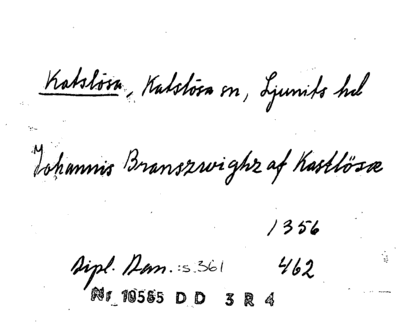 Katslösa, Katslösa sn, Ljunits hd
Johannis Branszwighz af Kastlösæ
1356
Dipl. Dan. :s.361 462
Nr 10565 DD 3 R 4